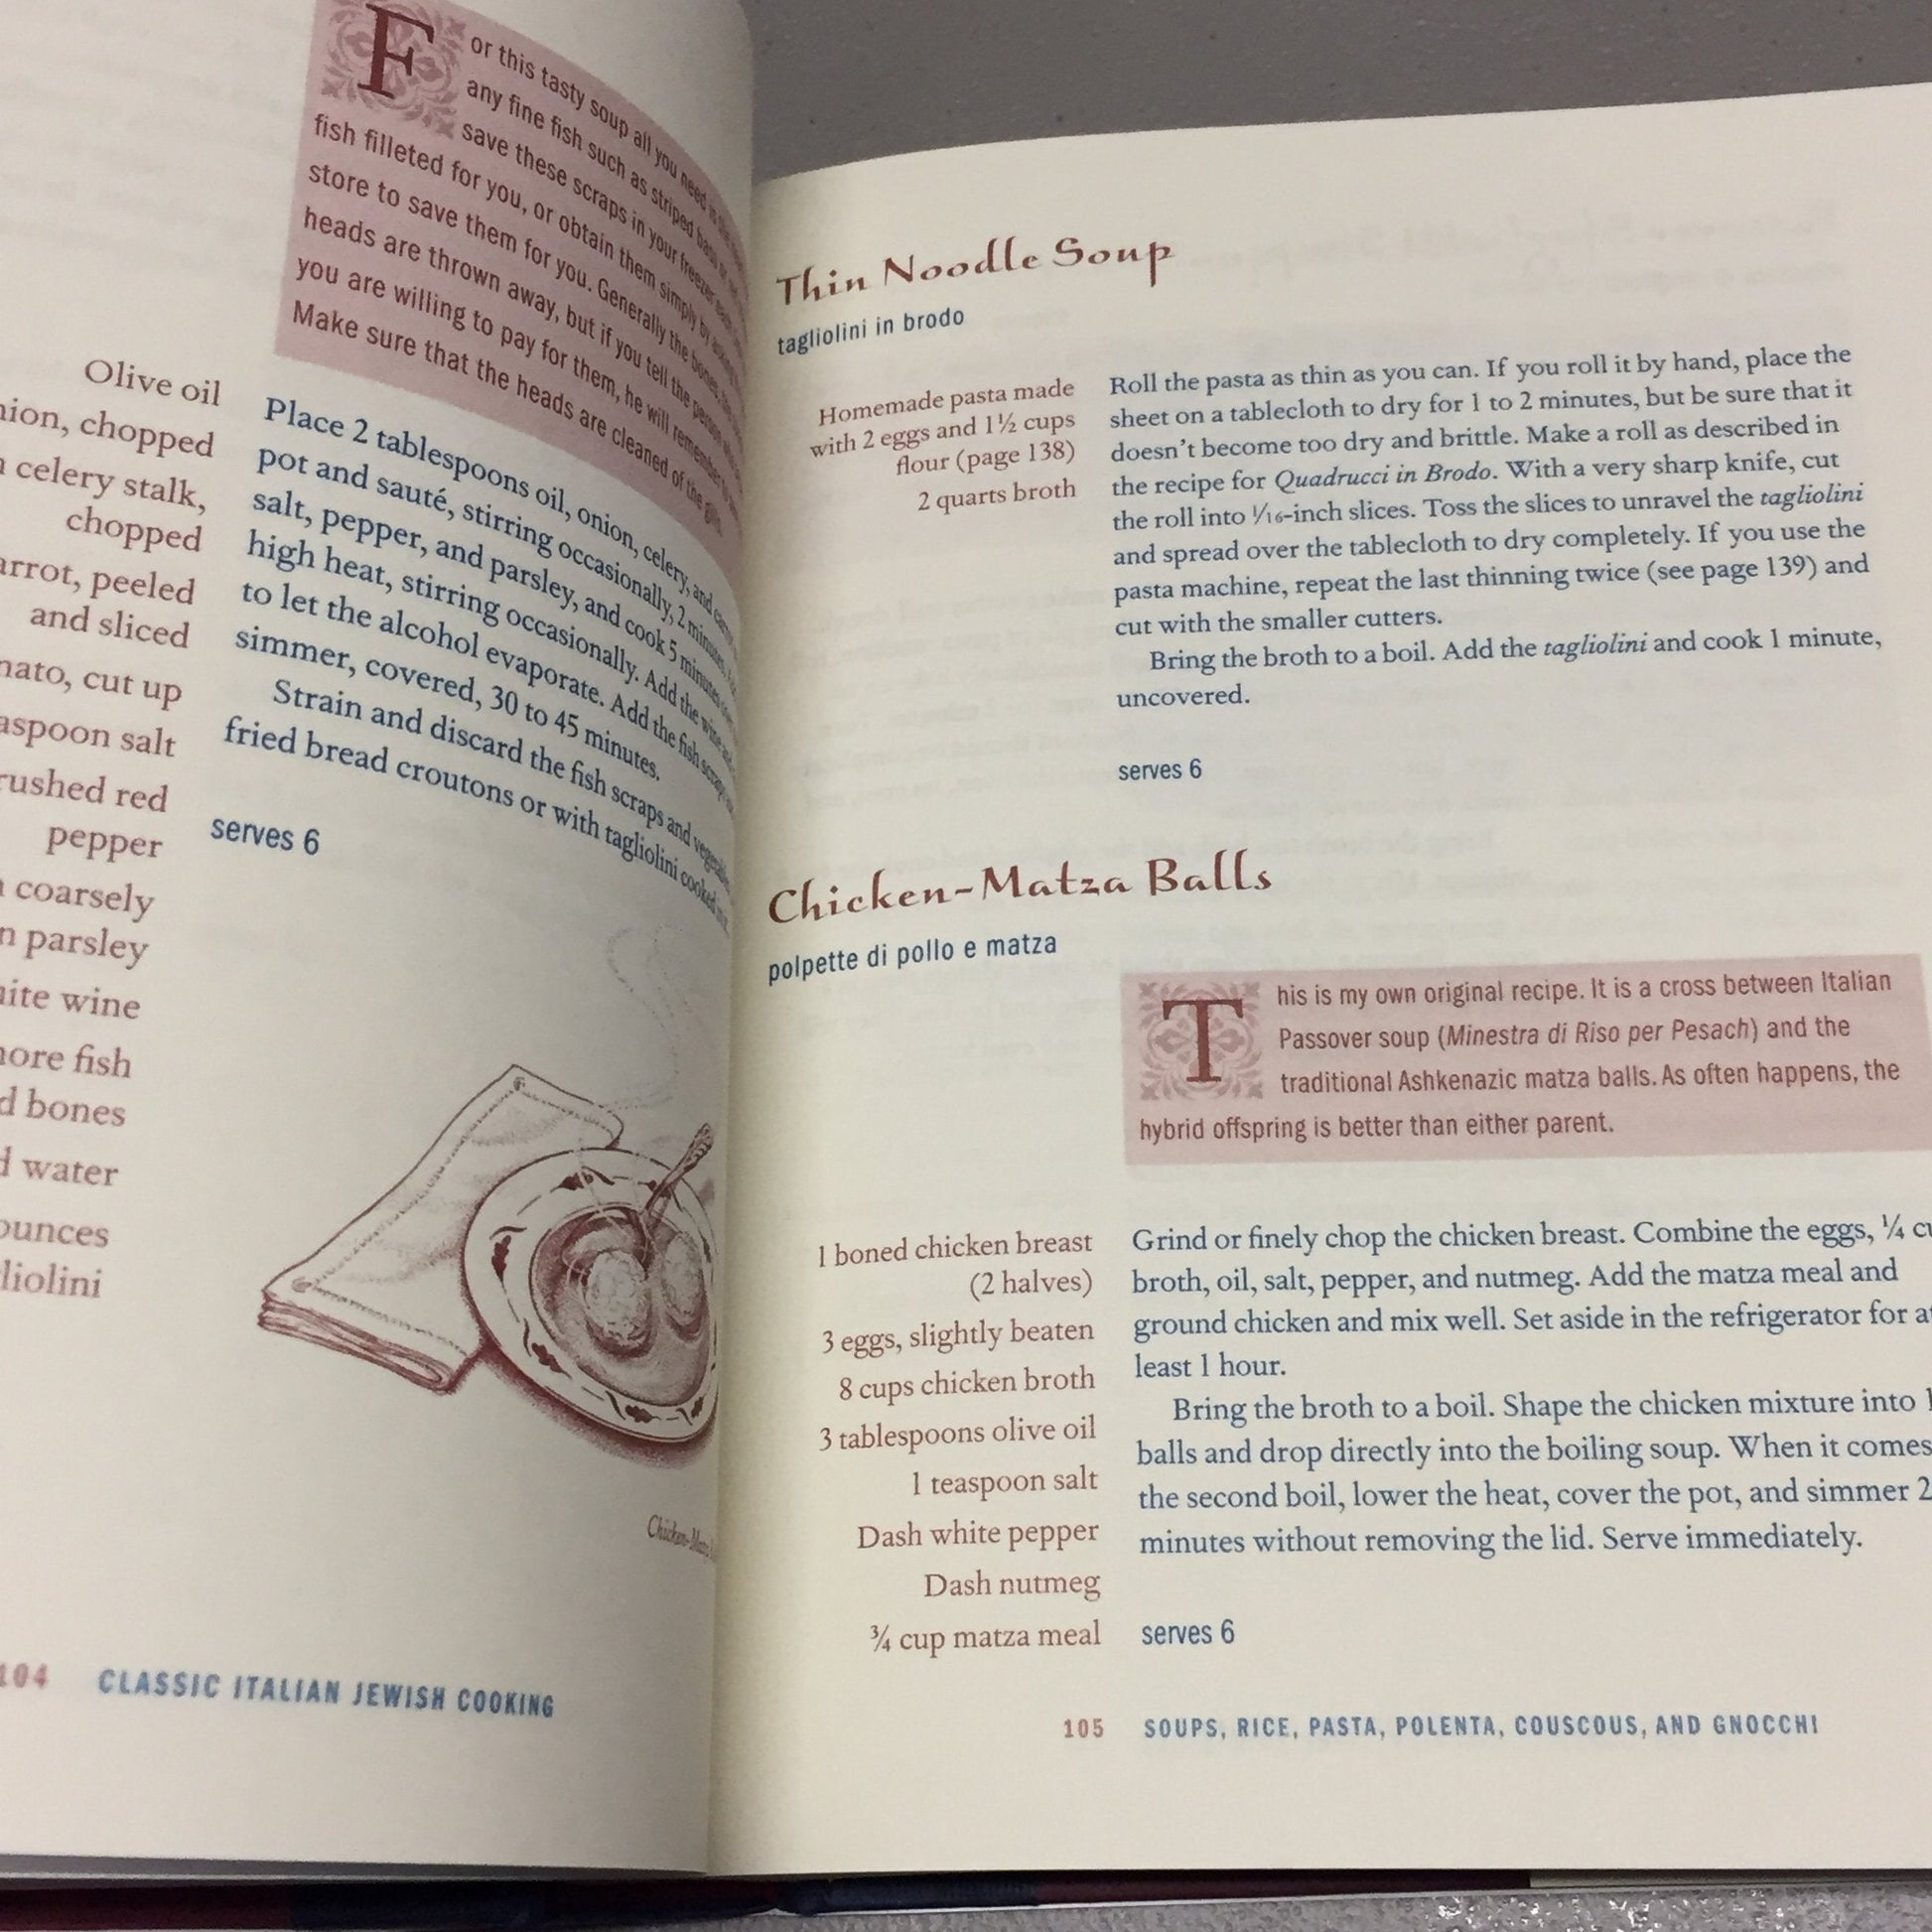 For this tasty soup all you need is the
any fine fish such as striped bass or
save these scraps in your freezer each
fish filleted for you, or obtain them simply by asking
store to save them for you. Generally the bones,
heads are thrown away, but if you tell the person
you are willing to pay for them, he will remember to
Make sure that the heads are cleaned of the gills.
Olive oil
chopped
celery stalk,
chopped
peeled
and sliced
cut up
salt
red
pepper
coarsely
parsley
wine
fish
bones
water
Place 2 tablespoons oil, onion, celery, and
pot and sauté, stirring occasionally, 2 minutes.
salt, pepper, and parsley, and cook 5 minutes
high heat, stirring occasionally. Add the wine and
to let the alcohol evaporate. Add the fish scraps
simmer, covered, 30 to 45 minutes.
Strain and discard the fish scraps and
fried bread croutons or with tagliolini cooked
serves 6
104 CLASSIC ITALIAN JEWISH COOKING
Thin Noodle Soup
tagliolini in brodo
Homemade pasta made
with 2 eggs and 1½ cups
flour (page 138)
2 quarts broth
Roll the pasta as thin as you can. If you roll it by hand, place the
sheet on a tablecloth to dry for 1 to 2 minutes, but be sure that it
doesn't become too dry and brittle. Make a roll as described in
the recipe for Quadrucci in Brodo. With a very sharp knife, cut
the roll into 1/16-inch slices. Toss the slices to unravel the tagliolini
and spread over the tablecloth to dry completely. If you use the
pasta machine, repeat the last thinning twice (see page 139) and
cut with the smaller cutters.
Bring the broth to a boil. Add the tagliolini and cook 1 minute,
uncovered.
serves 6
Chicken-Matza Balls
polpette di pollo e matza
This is my own original recipe. It is a cross between Italian
Passover soup (Minestra di Riso per Pesach) and the
traditional Ashkenazic matza balls. As often happens, the
hybrid offspring is better than either parent.
1 boned chicken breast
(2 halves)
3 eggs, slightly beaten
8 cups chicken broth
3 tablespoons olive oil
1 teaspoon salt
Dash white pepper
Dash nutmeg
¾ cup matza meal
Grind or finely chop the chicken breast. Combine the eggs, ¼
broth, oil, salt, pepper, and nutmeg. Add the matza meal and
ground chicken and mix well. Set aside in the refrigerator for at
least 1 hour.
Bring the broth to a boil. Shape the chicken mixture into
balls and drop directly into the boiling soup. When it comes
the second boil, lower the heat, cover the pot, and simmer
minutes without removing the lid. Serve immediately.
serves 6
105 SOUPS, RICE, PASTA, POLENTA, COUSCOUS, AND GNOCCHI